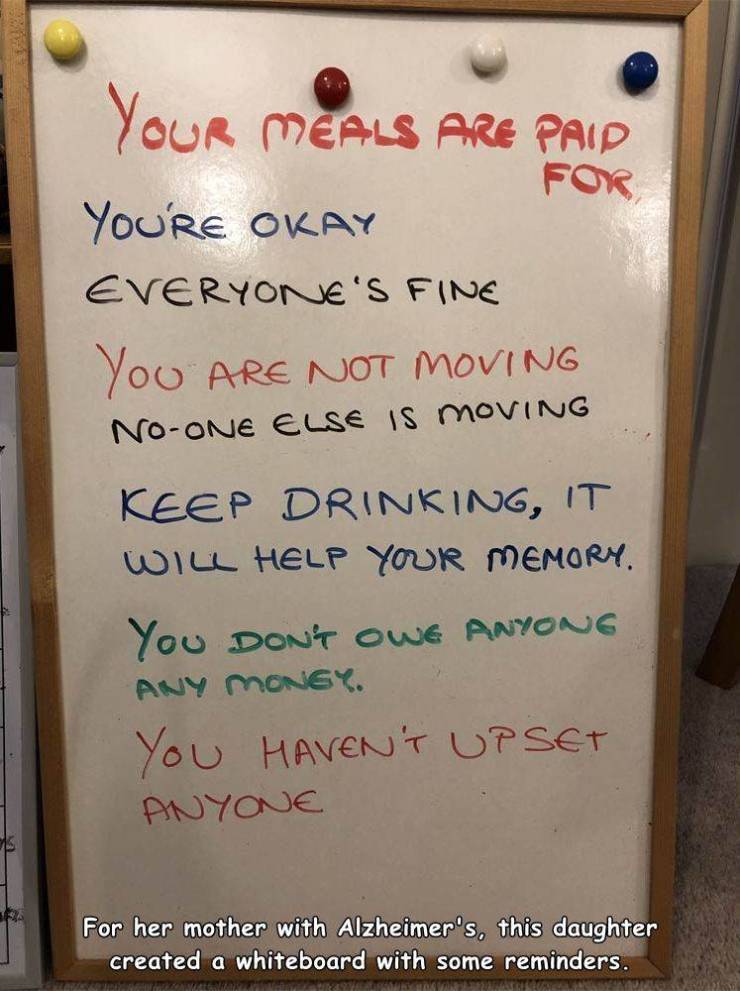 YOUR MEALS ARE PAID
FOR
YOU'RE OKAY
EVERYONE'S FINE
YOU ARE NOT MOVING
NO-ONE ELSE IS MOVING
KEEP DRINKING, IT
WILL HELP YOUR MEMORY.
YOU DON'T OWE ANYONE
ANY MONEY.
YOU HAVEN'T UPSET
ANYONE
For her mother with Alzheimer's, this daughter
created a whiteboard with some reminders.